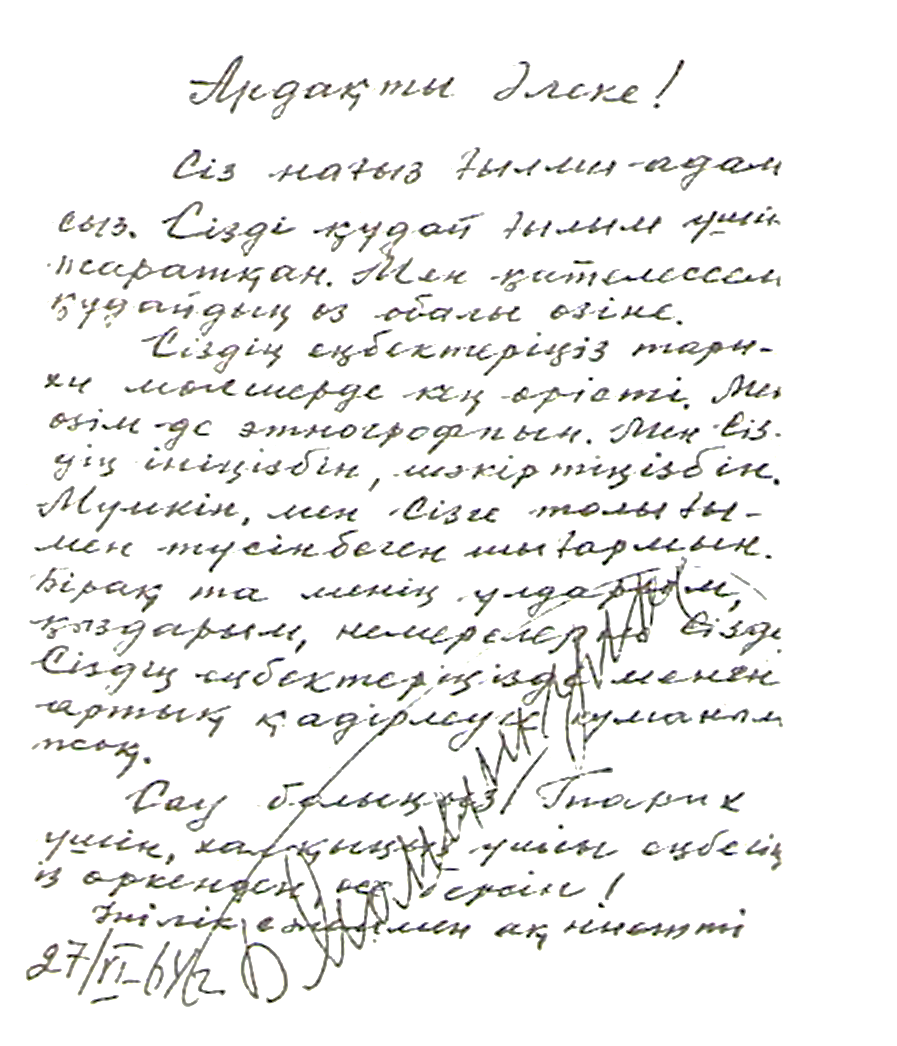 Ардақты Әлеке!
Сіз нағыз ғылми-адам
сыз. Сізді құдай ғылым үшін
жаратқан. Мен қателессем
құдайдың өз обалы өзіне.
Сіздің еңбектеріңіз тари-
хи мөлшерде кең өрісті. Мен
өзім-де этнографпын. Мен Сіз-
дің ініңізбін, шәкіртіңізбін.
Мүмкін, мен Сізге толығы-
мен түсінбеген шығармын.
Бірақ та менің ұлдарым,
қыздарым, немерелерім Сізді
Сіздің еңбектеріңізді менен
артық қадірлеуге күманым
жоқ.
Сау болыңыз! Тарих
үшін, халқыңыз үшін еңбегің
із өркенден, өсе берсін!
Інілік сәлеммен ақ ниетті
27/XI-64г.